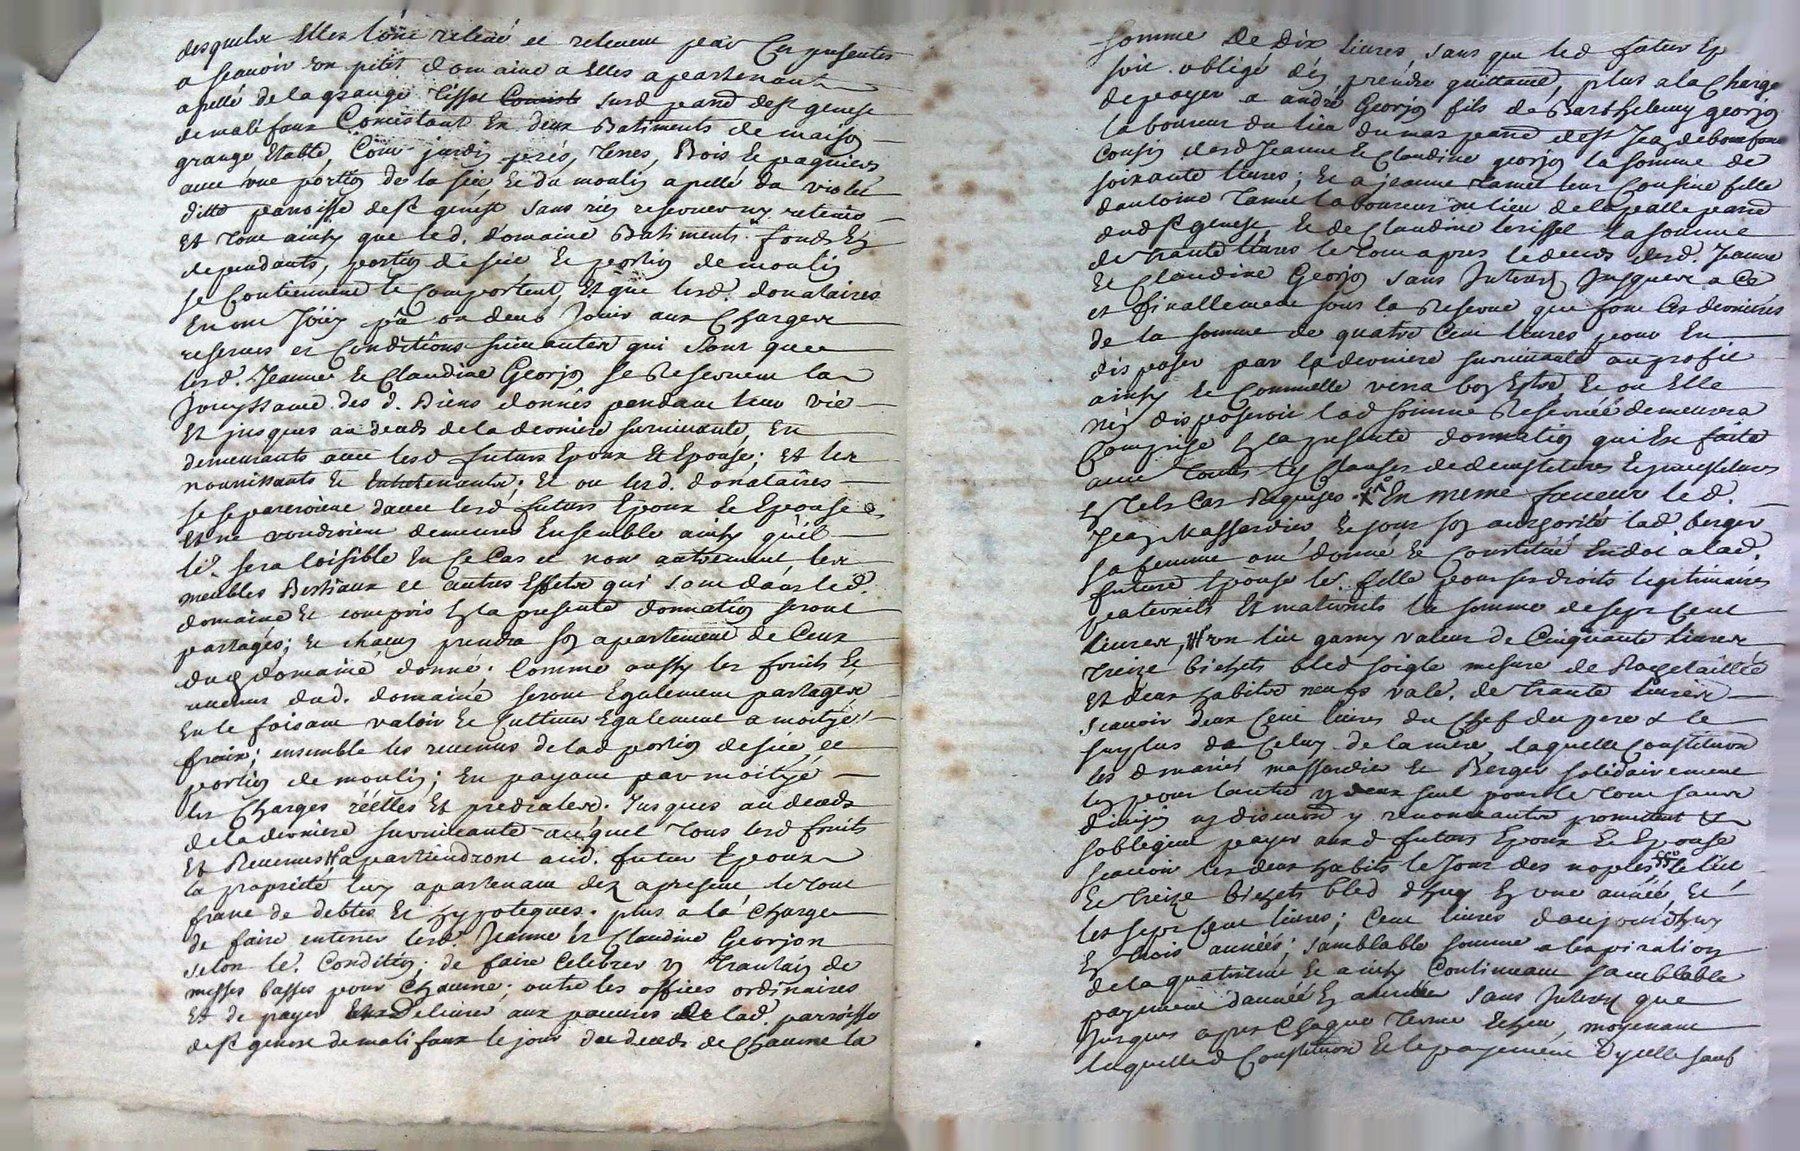 desquels elles l'ont retiré et retirent par ces presentes
a scavoir un petit domaine a elles apartenant
apellé de la grange sur d. parr. de st genest
de malifaux Consistant En deux Batiments de maison
grange Etable, Cour jardin prés, terres, Bois, et paquiers
avec une portion de la scie et du moulin apellé du violet
ditte parroisse de st genest sans rien reserver ny retenir
Et tout ainsy que led. domaine Batiments fonds En
dependants, portion de scie Et portion de moulin
se Contiennent et Comportent, Et que lesd. donataires
En ont Jouy pu ou deub Jouir aux Charges
reserves et Conditions suivantes qui sont que
lesd. Jeanne Et Claudine Georjon se Reservent la
Jouyssance des d. Biens donnés pendant leur vie
Et jusques au deceds de la derniere survivante, En
demeurants avec lesd futurs Epoux Et Epouse; Et les
nourrissants Et Entretenants; Et ou lesd. donataires
se separeroient d'avec lesd futurs Epoux Et Epouse
Et ne voudroient demeurer Ensemble ainsy qu'il
le. sera loisible En Ce Cas et non autrement les
meubles Bestiaux et autres Effets qui sont dans led.
domaine Et compris En la presente donnation seront
partagés; Et chacun prendra son apartement de Ceux
du d domaine donné. Comme aussy les fruits Et
revenus dud. domaine seront Egalement partagés
En le faisant valoir Et Cultiver Egalement a moityé
fraix; ensemble les revenus de lad portion de scie, et
portion de moulin; En payant par moityé
les Charges réélles Et prediales. Jusques au deceds
de la derniere survivante auquel tous lesd fruits
Et Revenus apartiendront aud. futur Epoux
la propriété luy apartenant dez a present le tout
franc de debtes Et hypoteques. plus a la Charge
de faire enterrer lesd. Jeanne Et Claudine Georjon
selon le. Condition; de faire Celebrer un trantain de
messes basses pour Chacune; outre les offices ordinaires
Et de payer Et delivrer aux pauvres de lad. parroisse
de st genest de malifaux le jour du deceds de Chacune la
somme de Dix livres, sans que led futur Ep
soit obligé d'en prendre quittance, plus a la Charge
de payer a andré Georjon fils de Barthelemy georjon
laboureur du lieu du mas parr. de st Jean de bonnefond
Cousin desd Jeanne Et Claudine georjon la somme de
soixante livres; Et a jeanne tamet leur Cousine fille
d'antoine tamet laboureur du lieu de la palle parr.
dud st genest Et de Claudine la somme
de trante livres le tout apres le deceds desd. Jeanne
Et Claudine Georjon sans Interest Jusques a Ce
et finallement sous la Reserve que font Ces dernieres
de la somme de quatre Cent livres pour En
disposer par la derniere survivante au profit
ainsy et Comme Elle verra bon Estre Et ou Elle
n'en disposeroit lad somme Reservée demeurera
Comprise En la presente donnation qui Est faite
avec toutes les Clauses de demystitures Et
En tels Cas Requises. En meme faveur led.
Jean Massardier, Et sous son authorité lad berger
sa femme ont donné Et Constitué En dot a lad.
future Epouse le. fille pour ses droits legitimaires
paternels Et maternels la somme de sept Cent
livres, un lit garny valeur de Cinquante livres
treize bichets bled soigle mesure de Rochetaillée
Et deux habits neufs vale. de trante livres
scavoir deux Cent livres du Chef du pere & le
surplus de Celuy de la mere, laquelle Constitution
les d mariés massardier Et Berger solidairement
l'un pour l'autre un deux seul pour le tout sans
division ny discution y renonceantes promettent &
s'obligent payer auxd futurs Epoux Et Epouse
scavoir les deux habits le Jour des nopces, le lit
Et treize bichets bled d'huy En une année, Et
les sept Cent livres; Cent livres d'aujourdhuy
En trois années; semblable somme a l'expiration
de la quatrieme Et ainsy Continuant semblable
payement d'année En année sans Interest que
Jusques apres Chaque terme Echeu, moyenant
laquelle d Constitution Et le payement D'ycelle sauf